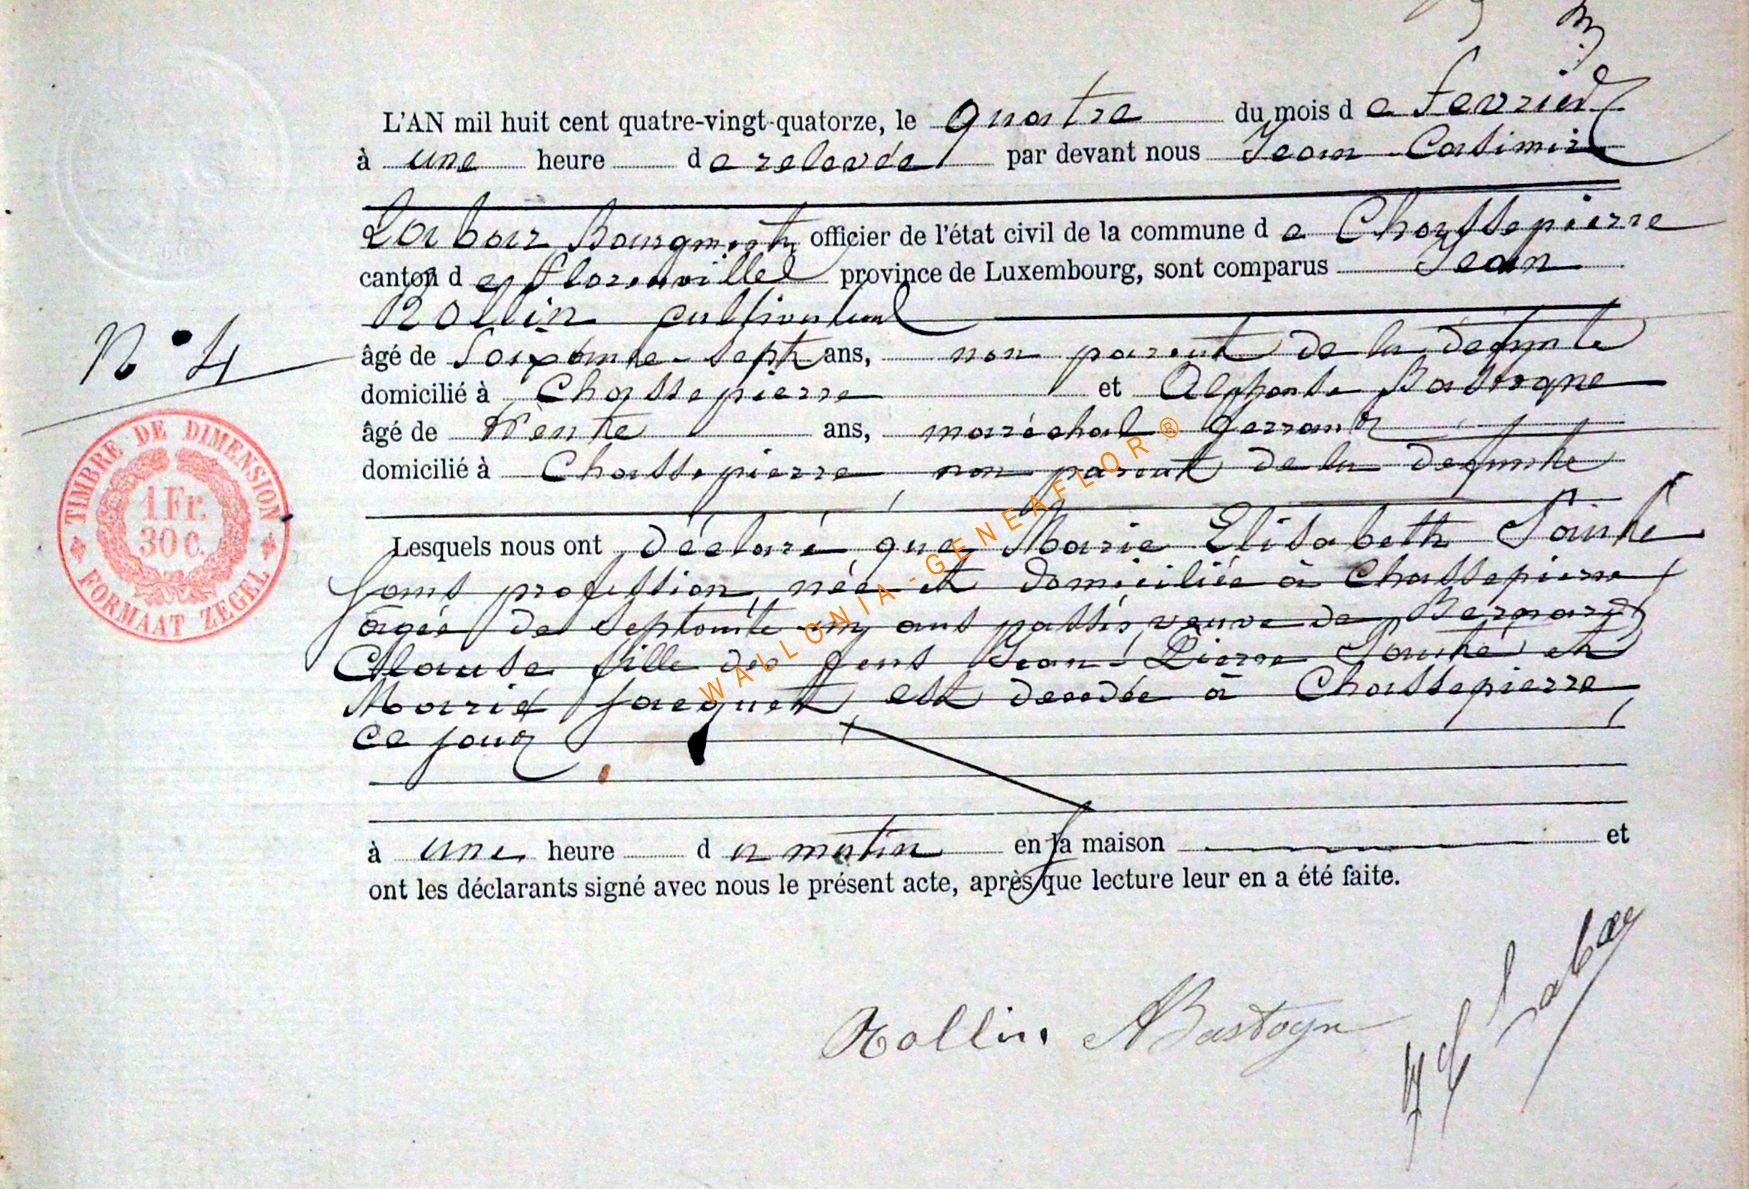 L'AN mil huit cent quatre-vingt-quatorze, le quatre du mois de fevrier
à une heure de relevée par devant nous Jean Casimir
Labar Bourgmestre officier de l'état civil de la commune de Chassepierre
canton de Florenville province de Luxembourg, sont comparus Jean
Rollin cultivateur
N° 4
âgé de Soixante-sept ans, non parent de la defunte
domicilié à Chassepierre et Alphonse Bastogne
âgé de trente ans, maréchal ferrant
domicilié à Chassepierre non parent de la defunte
TIMBRE DE DIMENSION
1 Fr.
30 c.
FORMAAT ZEGEL
Lesquels nous ont déclaré que Marie Elisabeth Sainte
sans profession, née et domiciliée à Chassepierre
âgée de septante ans passés veuve de Bernard
Clause fille de feus Jean-Pierre et
Marie Jacquet est decedée à Chassepierre
ce jour
à une heure du matin en sa maison et
ont les déclarants signé avec nous le présent acte, après que lecture leur en a été faite.
Rollin ABastogne Labar
WALLONIA-GENEAFLOR®